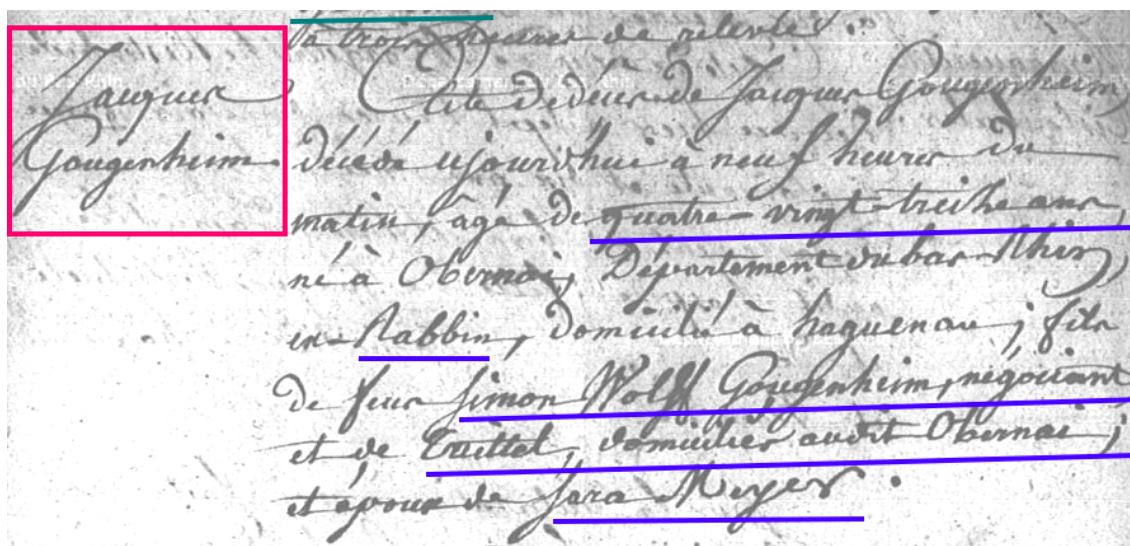 à trois heures de relevée.
Jacques
Gougenheim.
Acte de décès de Jacques Gougenheim
décédé ujourd'hui à neuf heures du
matin, âgé de quatre-vingt-treize ans,
né à Obernai, Département du bas-Rhin,
ex-Rabbin, domicilié à haguenau ; fils
de feus Simon Wolff Gougenheim, négociant
et de Truittel, domiciliés audit Obernai ;
et époux de Sara Meyer.